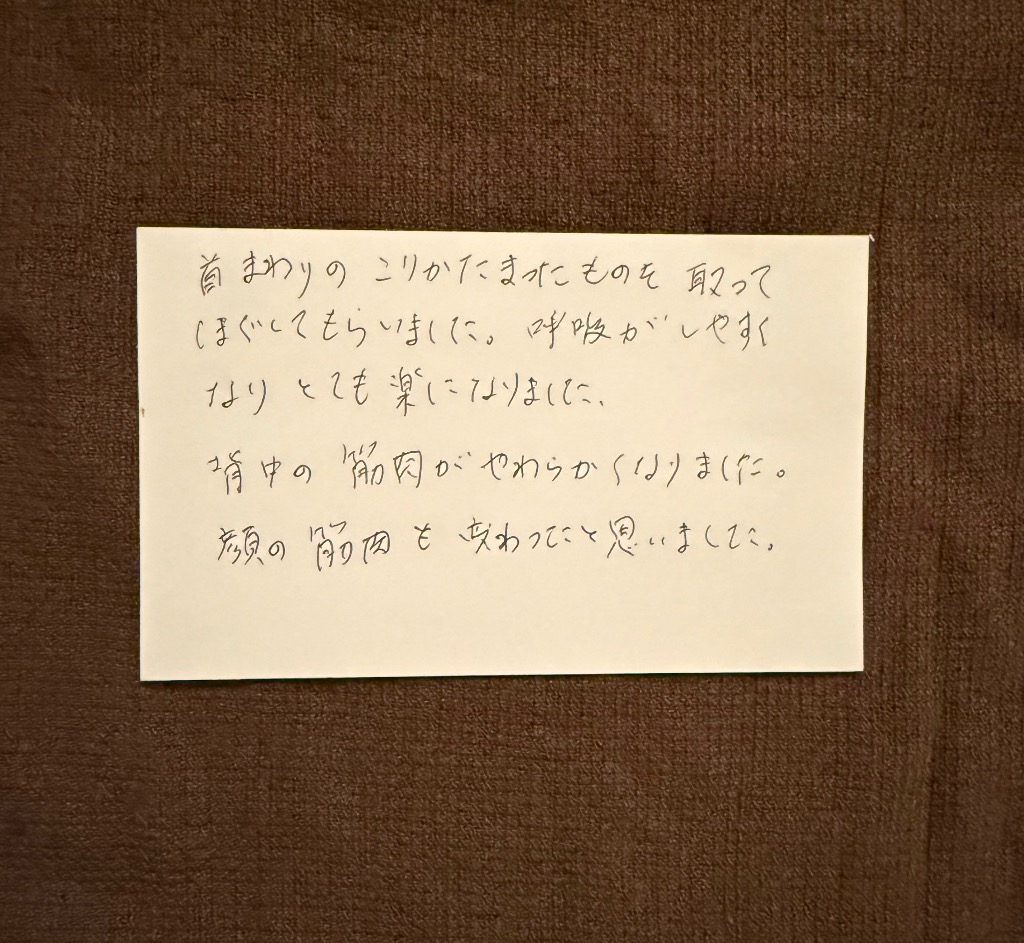 首まわりの こりかたまったものを 取って
ほぐしてもらいました。呼吸がしやすく
なり とても 楽になりました、
背中の 筋肉が やわらかくなりました。
顔の 筋肉も 変わったと思いました。